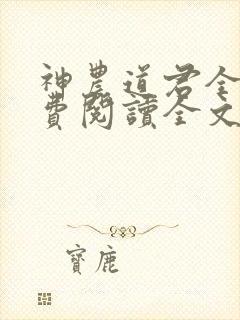 神農道君全
費閱讀全文
寶鹿